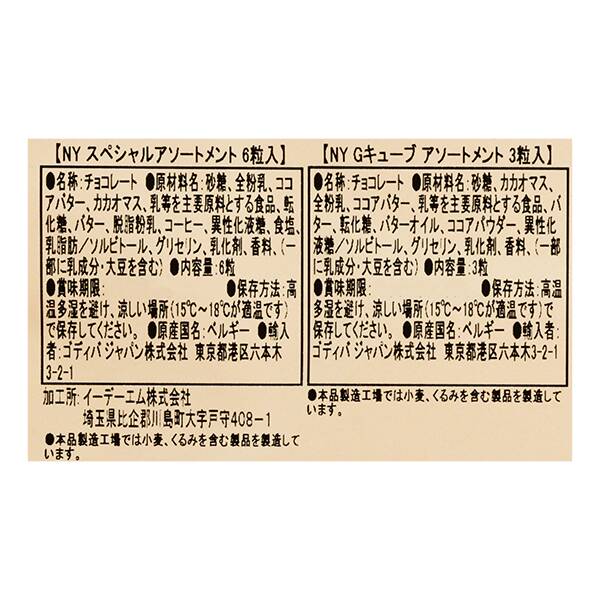 【NY スペシャルアソートメント 6粒入】
●名称:チョコレート ●原材料名:砂糖、全粉乳、ココ
アバター、カカオマス、乳等を主要原料とする食品、転
化糖、バター、脱脂粉乳、コーヒー、異性化液糖、食塩、
乳脂肪/ソルビトール、グリセリン、乳化剤、香料、(一
部に乳成分・大豆を含む) ●内容量:6粒
●賞味期限: ●保存方法:高
温多湿を避け、涼しい場所(15℃～18℃が適温です)
で保存してください。 ●原産国名:ベルギー ●輸入
者:ゴディバ ジャパン株式会社 東京都港区六本木
3-2-1
加工所:イーデーエム株式会社
埼玉県比企郡川島町大字戸守408-1
●本品製造工場では小麦、くるみを含む製品を製造して
います。
【NY Gキューブ アソートメント 3粒入】
●名称:チョコレート ●原材料名:砂糖、カカオマス、
全粉乳、ココアバター、乳等を主要原料とする食品、バ
ター、転化糖、バターオイル、ココアパウダー、異性化
液糖/ソルビトール、グリセリン、乳化剤、香料、(一部
に乳成分・大豆を含む) ●内容量:3粒
●賞味期限: ●保存方法:高温
多湿を避け、涼しい場所(15℃～18℃が適温です)で
保存してください。 ●原産国名:ベルギー ●輸入者:
ゴディバ ジャパン株式会社 東京都港区六本木3-2-1
●本品製造工場では小麦、くるみを含む製品を製造して
います。